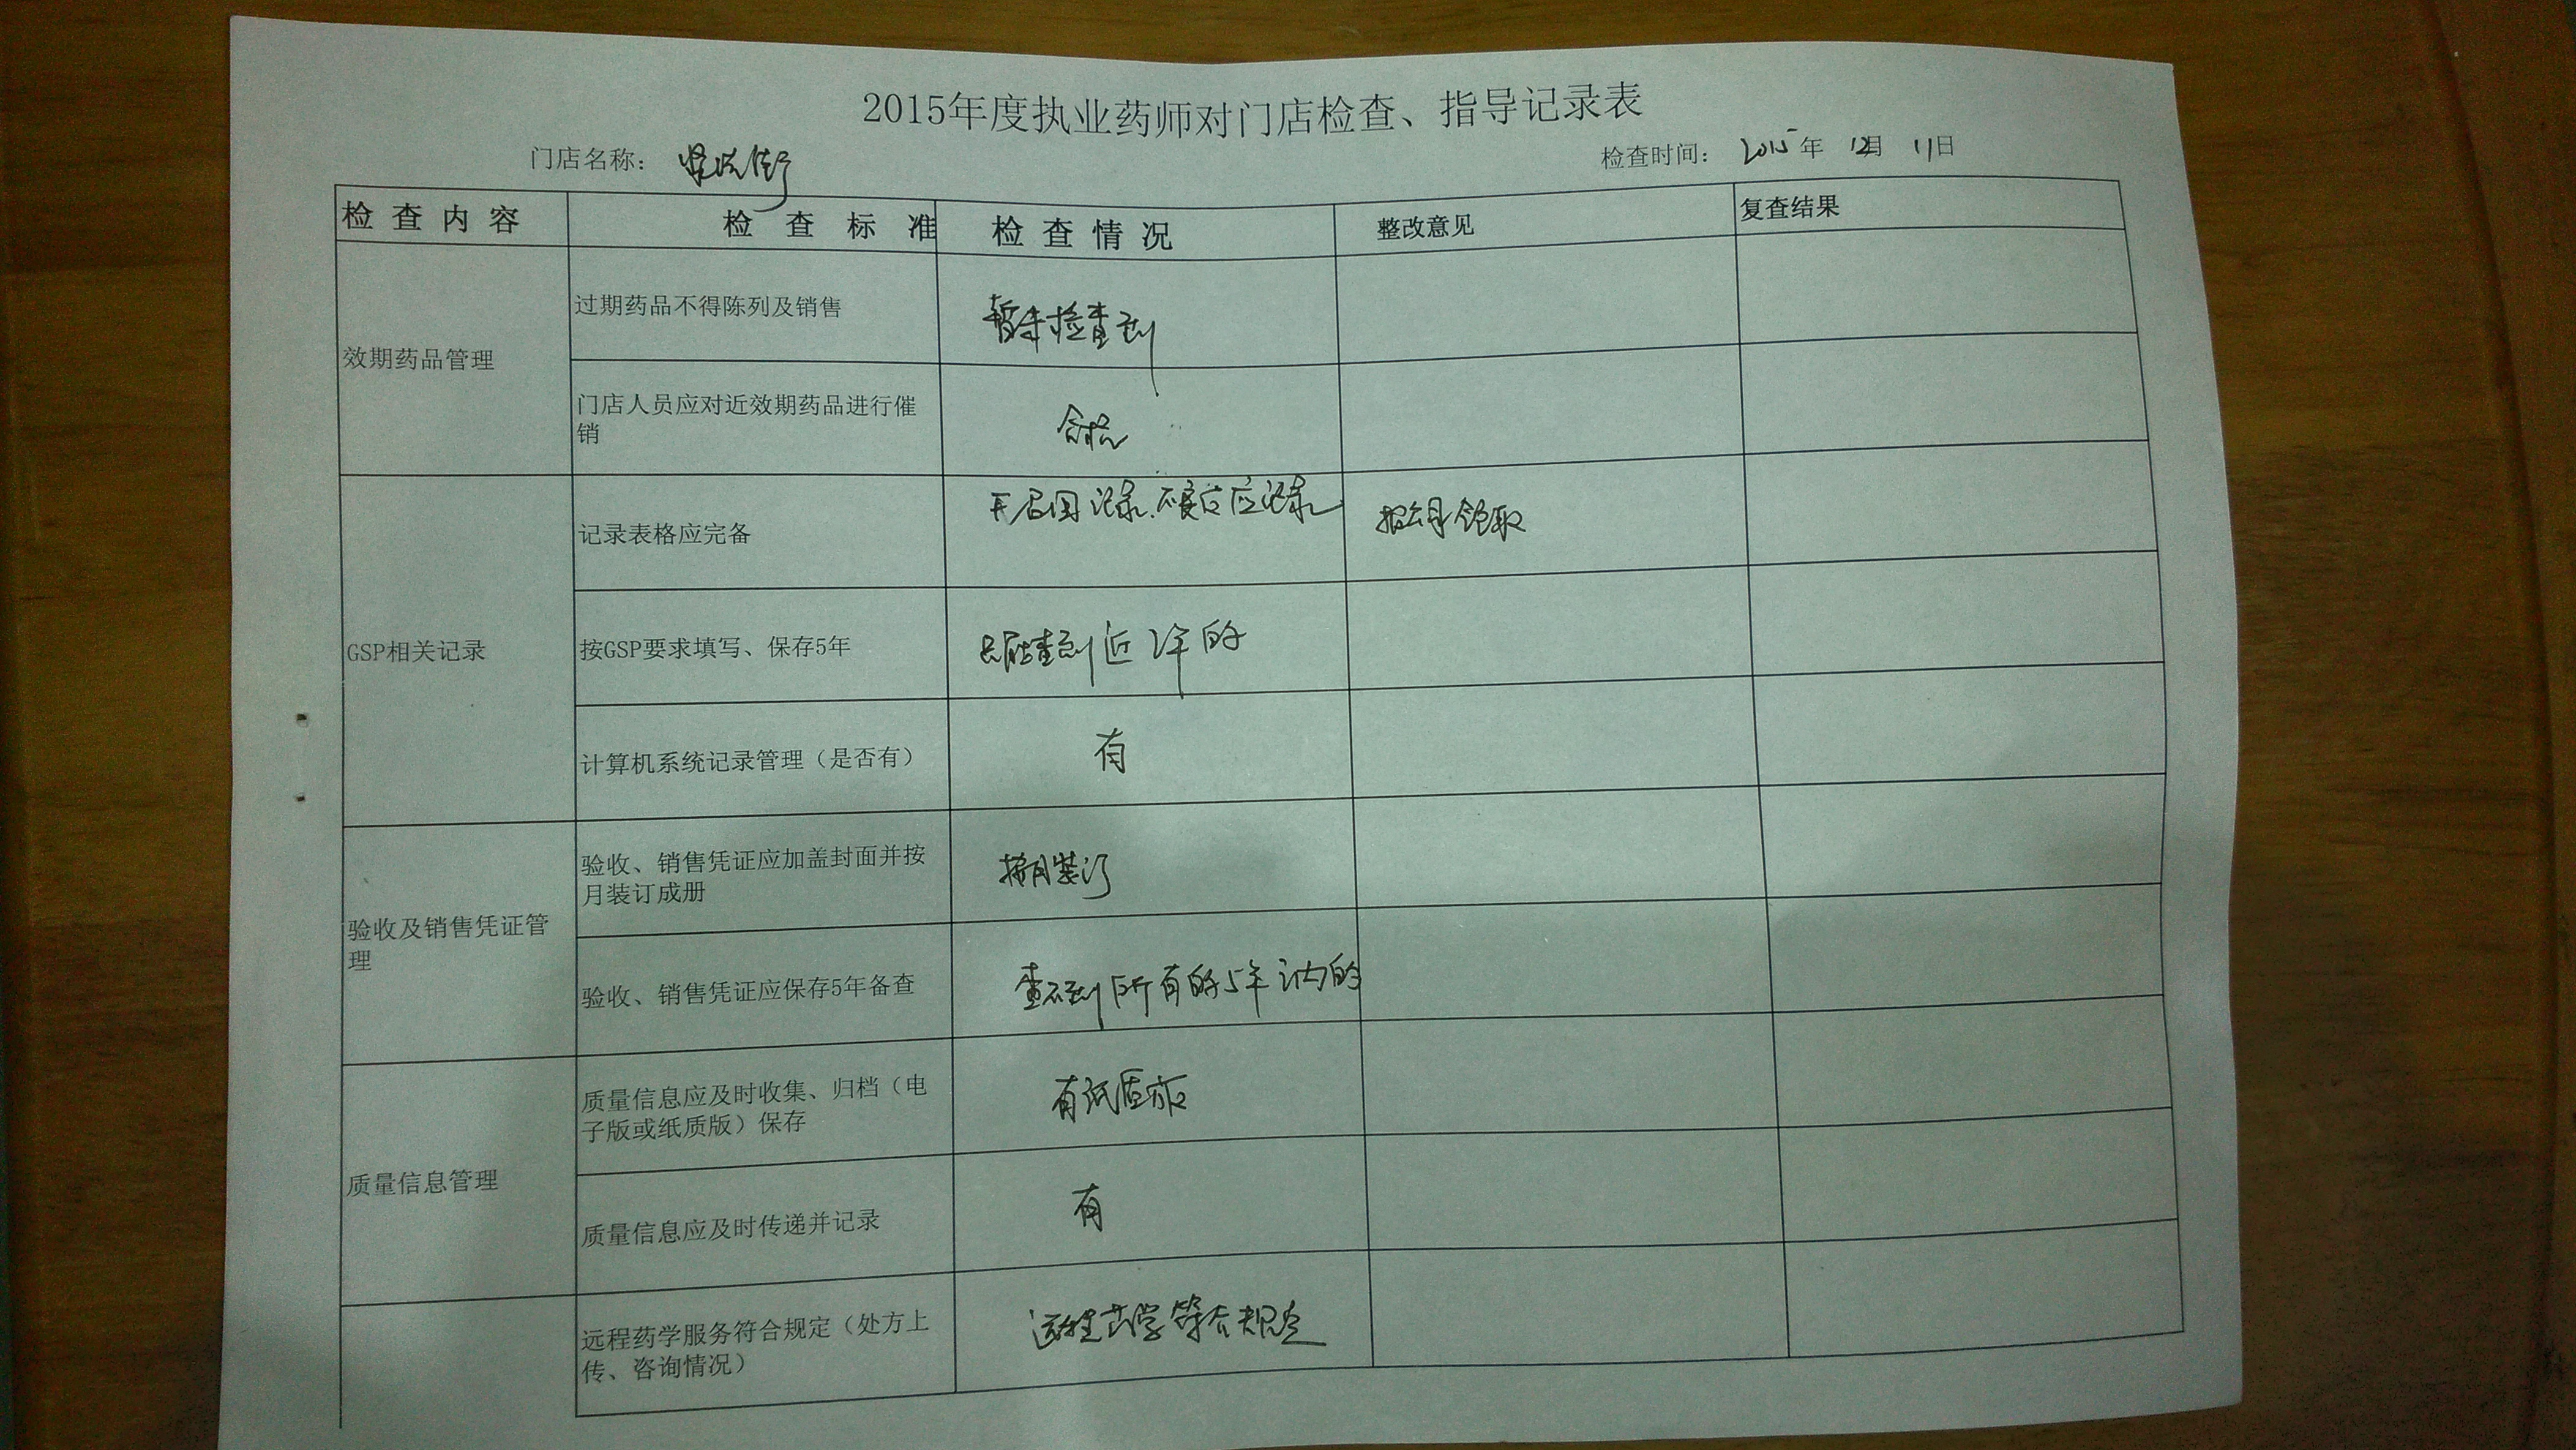 2015年度执业药师对门店检查、指导记录表
门店名称： 街 检查时间： 2015年 12月 11日
检查内容 检查标准 检查情况 整改意见 复查结果
效期药品管理
过期药品不得陈列及销售 暂未检查到
门店人员应对近效期药品进行催
销
合格
GSP相关记录
记录表格应完备 记录、不良反应记录 领取
按GSP要求填写、保存5年 只能查到近2年的
计算机系统记录管理（是否有） 有
验收及销售凭证管
理
验收、销售凭证应加盖封面并按
月装订成册
按月装订
验收、销售凭证应保存5年备查 查不到所有的5年以内的
质量信息管理
质量信息应及时收集、归档（电
子版或纸质版）保存
有纸质版
质量信息应及时传递并记录 有
远程药学服务符合规定（处方上
传、咨询情况）
远程药学符合规定